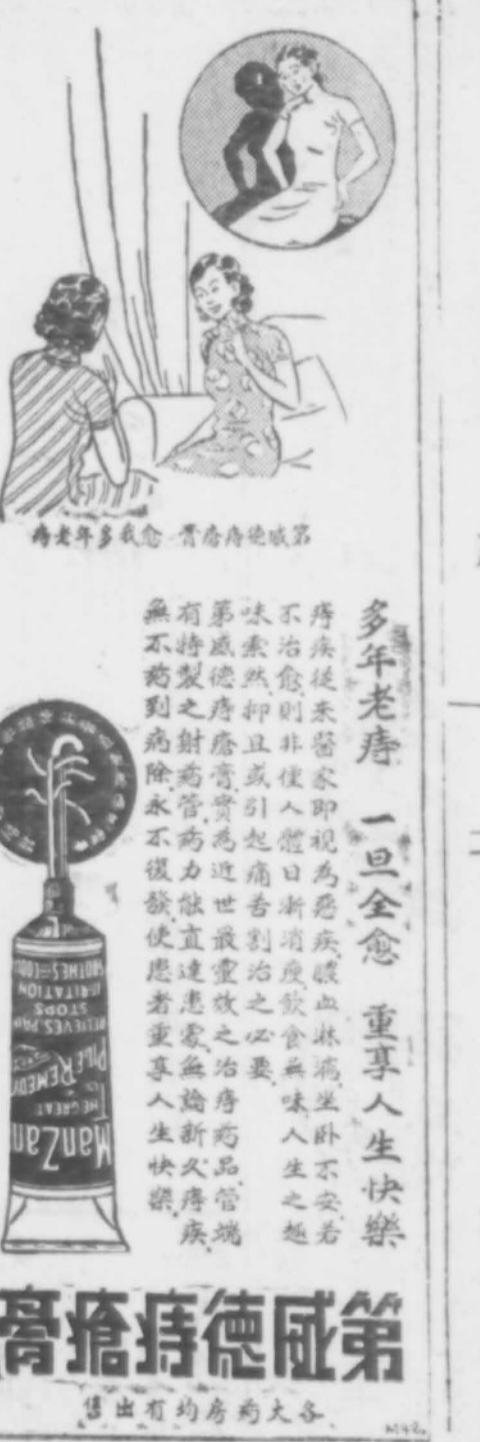 第威德痔瘡膏 愈我多年老痔
多年老痔 一旦全愈 重享人生快樂
痔疾從來醫家即視為惡疾膿血淋漓坐卧不安若
不治愈則非僅人體日漸消瘦飲食無味人生之趣
味索然抑且或引起痛苦割治之必要
第威德痔瘡膏實為近世最靈效之治痔药品管端
有特製之射药管药力能直達患處無論新久痔疾
無不药到病除永不復發使患者重享人生快樂
ManZan
THE GREAT
PILE REMEDY
RELIEVES PAIN
STOPS
IRRITATION
SOOTHES-COOLS
第威德痔瘡膏
各大药房均有出售
M42